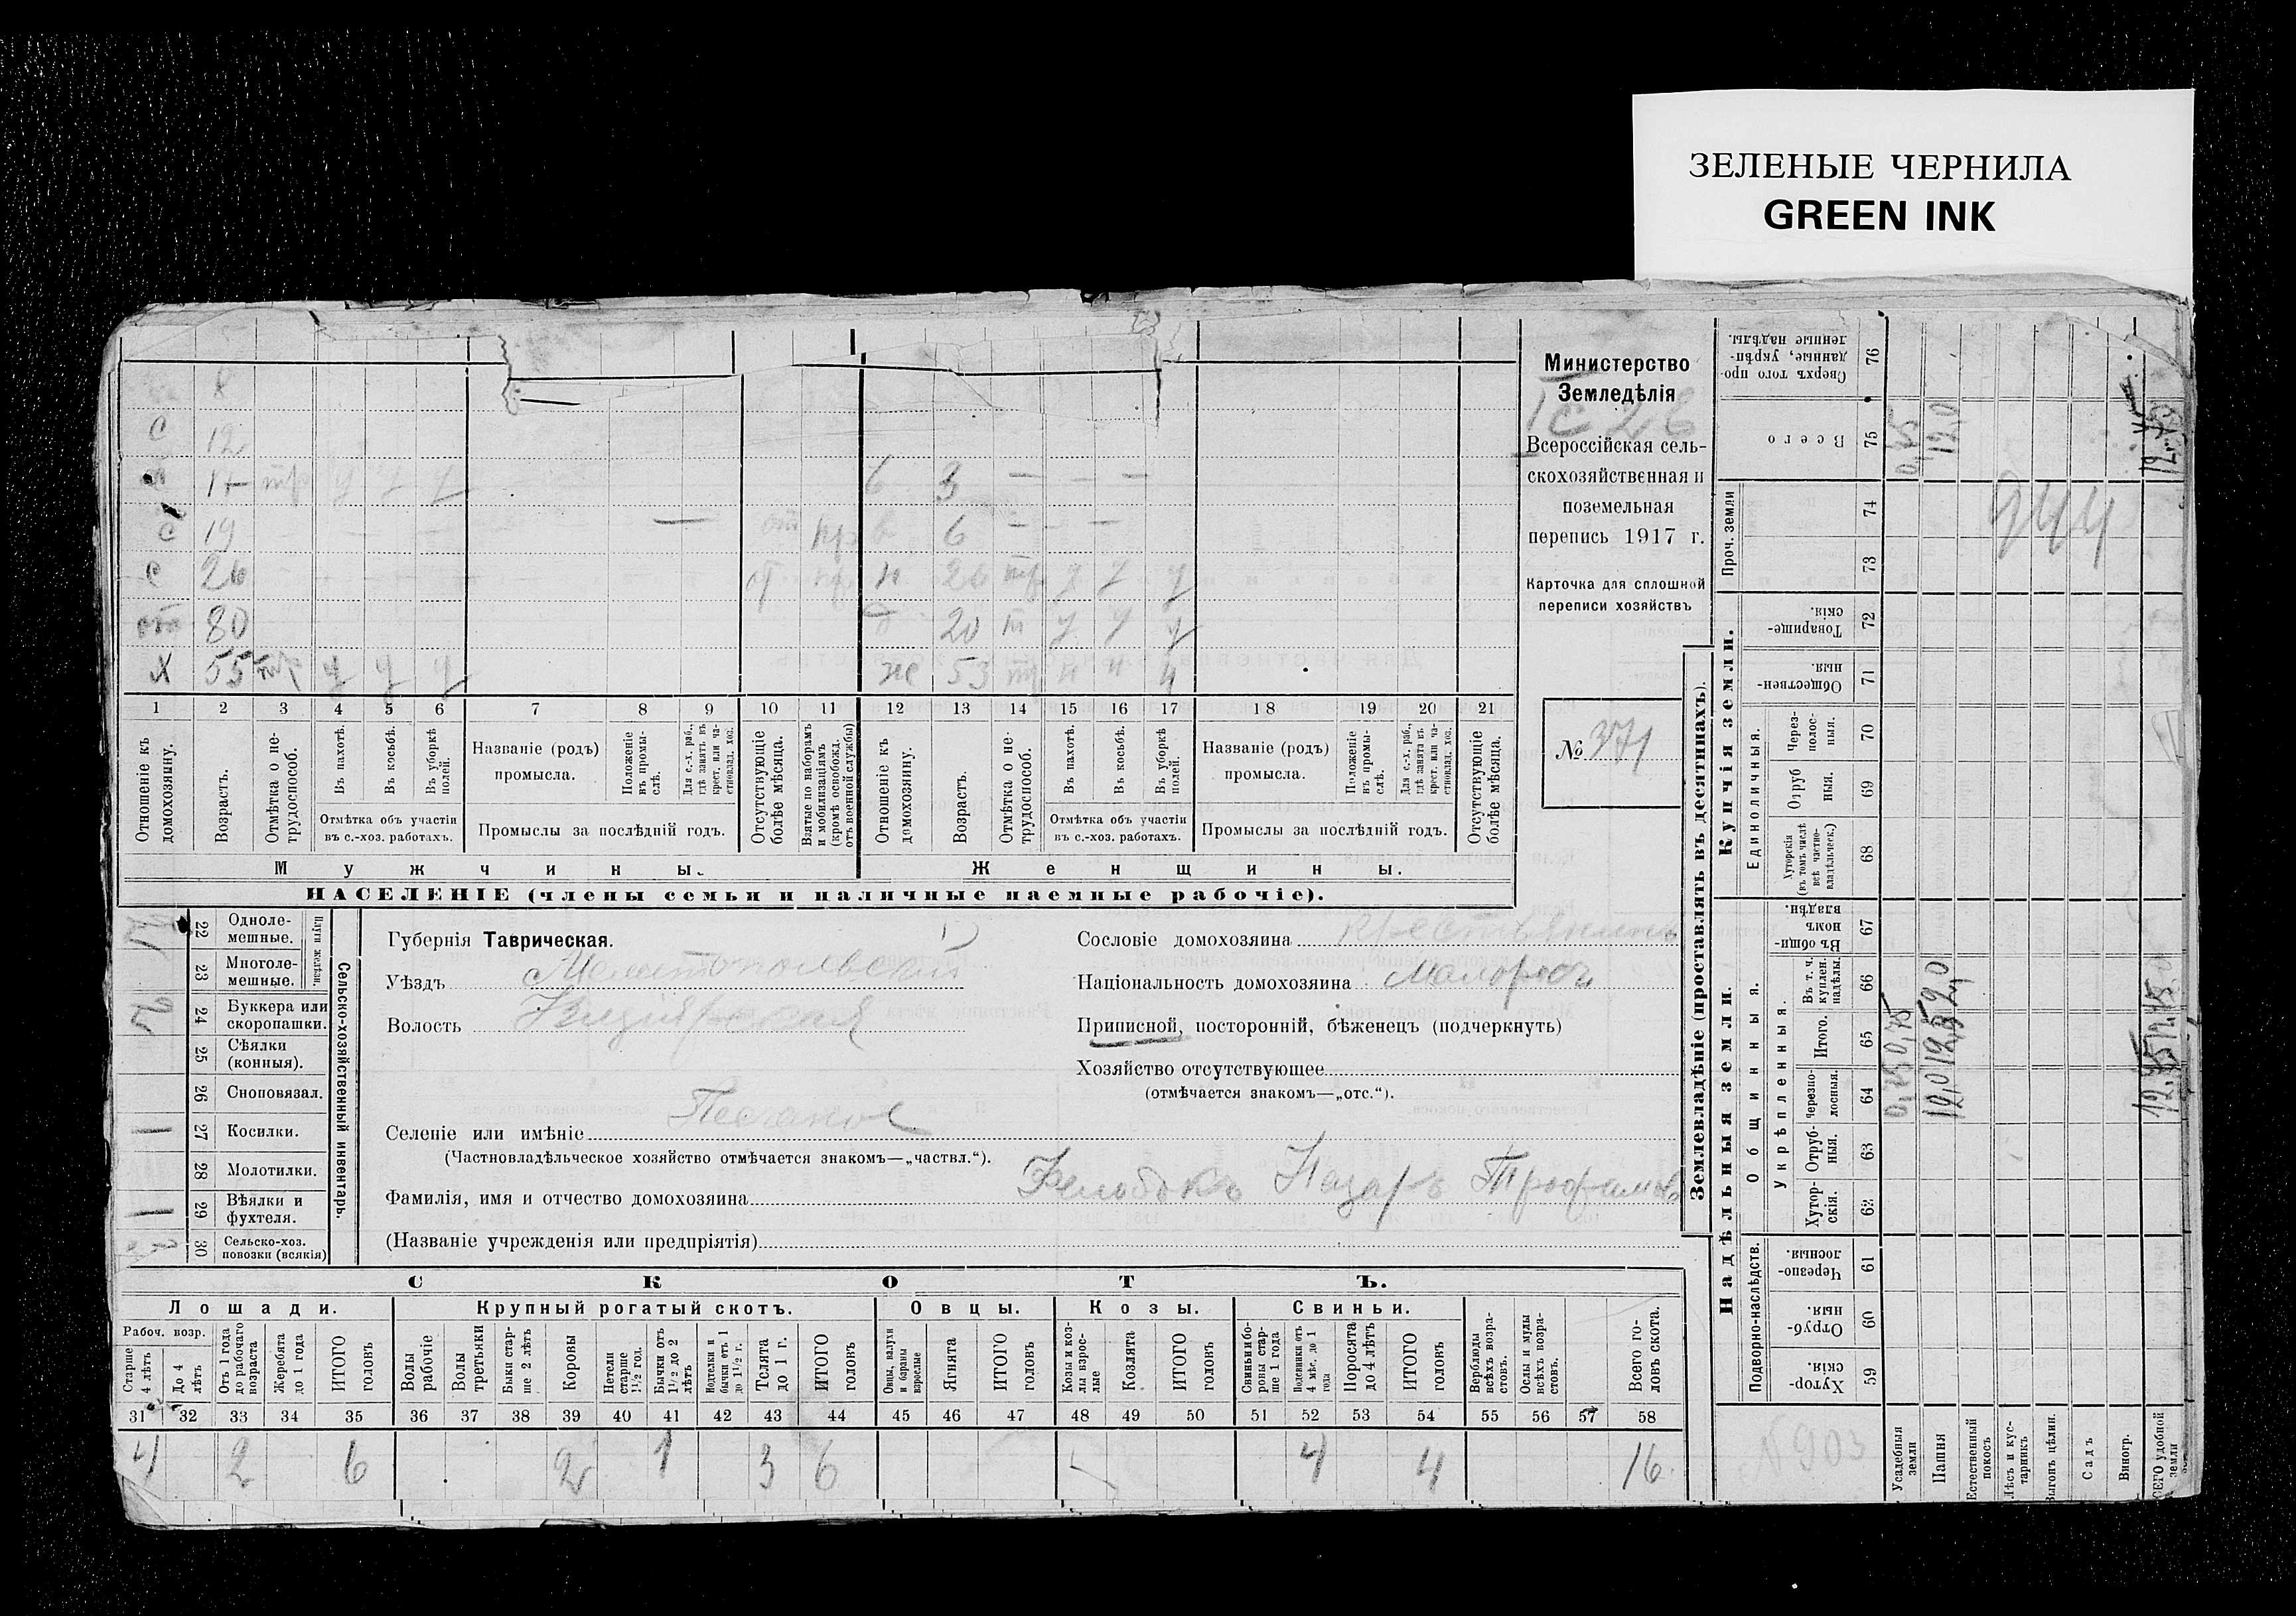 ЗЕЛЕНЫЕ ЧЕРНИЛА
GREEN INK
8
с 12
тр у у у
6 3 — — —
с 19 — 6 — — —
с 26 26 тр у у у
80 20 т у у у
х 55 тр у у у же 53 тр у у у
1 2 3 4 5 6 7 8 9 10 11 12 13 14 15 16 17 18 19 20 21
Отношеніе къ домохозяину.
Возрастъ.
Отмѣтка о нетрудоспособ.
Въ пахотѣ.
Въ косьбѣ.
Въ уборкѣ полей.
Отмѣтка объ участіи въ с.-хоз. работахъ.
Названіе (родъ) промысла.
Положеніе въ промыслѣ.
Для с.-х. раб., гдѣ занятъ въ крест. или частновлад. хоз.
Промыслы за послѣдній годъ.
Отсутствующіе болѣе мѣсяца.
Взятые по наборамъ и мобилизаціямъ (кромѣ освобожд. отъ военной службы)
Отношеніе къ домохозяину.
Возрастъ.
Отмѣтка о нетрудоспособ.
Въ пахотѣ.
Въ косьбѣ.
Въ уборкѣ полей.
Отмѣтка объ участіи въ с.-хоз. работахъ.
Названіе (родъ) промысла.
Положеніе въ промыслѣ.
Для с.-х. раб., гдѣ занята въ крест. или частновлад. хоз.
Промыслы за послѣдній годъ.
Отсутствующіе болѣе мѣсяца.
Мужчины.
Женщины.
НАСЕЛЕНІЕ (члены семьи и наличные наемные рабочіе).
Министерство
Земледѣлія
Всероссійская сель-
скохозяйственная и
поземельная
перепись 1917 г.
Карточка для сплошной
переписи хозяйствъ
№ 371
22 Одноле-
мешные.
23 Многоле-
мешные.
Плуги желѣзн.
24 Буккера или
скоропашки.
25 Сѣялки
(конныя).
26 Сноповязал.
27 Косилки. 1
28 Молотилки.
29 Вѣялки и
фухтеля. 1
30 Сельско-хоз.
повозки (всякія)
Сельско-хозяйственный инвентарь.
Губернія Таврическая.
Уѣздъ Мелитопольскій
Волость
Селеніе или имѣніе Песчаное
(Частновладѣльческое хозяйство отмѣчается знакомъ—„частвл.“).
Фамилія, имя и отчество домохозяина Белобокъ Назаръ Трофимовъ
(Названіе учрежденія или предпріятія)
Сословіе домохозяина крестьянинъ
Національность домохозяина малороссъ
Приписной, посторонній, бѣженецъ (подчеркнуть)
Хозяйство отсутствующее
(отмѣчается знакомъ—„отс.“).
СКОТЪ.
Лошади. Крупный рогатый скотъ. Овцы. Козы. Свиньи.
Рабоч. возр.
Старше 4 лѣтъ
До 4 лѣтъ
Отъ 1 года до рабочаго возраста
Жеребята до 1 года
ИТОГО головъ
Волы рабочіе
Волы третьяки
Быки старше 2 лѣтъ
Коровы
Нетели старше 1½ год.
Бычки отъ 1½ до 2 лѣтъ
Подтелки и бычки отъ 1 до 1½ г.
Телята до 1 г.
ИТОГО головъ
Овцы, валухи и бараны взрослые
Ягнята
ИТОГО головъ
Козы и козлы взрослые
Козлята
ИТОГО головъ
Свиньи и боровы старше 1 года
Подсвинки отъ 4 мѣс. до 1 года
Поросята до 4 лѣтъ
ИТОГО головъ
Верблюды всѣхъ возрастовъ.
Ослы и мулы всѣхъ возрастовъ.
Всего головъ скота.
31 32 33 34 35 36 37 38 39 40 41 42 43 44 45 46 47 48 49 50 51 52 53 54 55 56 57 58
4 2 6 2 1 3 6 4 4 16
Землевладѣніе (проставлять въ десятинахъ).
Сверхъ того проданные, укрѣпленные надѣлы. 76
Всего 75 12,0
Проч. земли 74 73
944
Купчія земли.
Товарищескія. 72
Общественныя. 71
Единоличныя.
Черезполосныя. 70
Отрубныя. 69
Хуторскія (въ томъ числѣ всѣ частновладѣльческ.) 68
Надѣльныя земли.
Общинныя.
Въ общинномъ владѣн. 67
Укрѣпленныя.
Въ т. ч. куплен. надѣлы. 66
Итого. 65
Черезполосныя. 64
Отрубныя. 63
Хуторскія. 62
Подворно-наслѣдств.
Черезполосныя. 61
Отрубныя. 60
Хуторскія. 59
Усадебныя земли
Пашня
Естественный покосъ
Лѣсъ и кустарникъ
Выгонъ цѣлин.
Садъ
Виногр.
ВСЕГО удобной земли